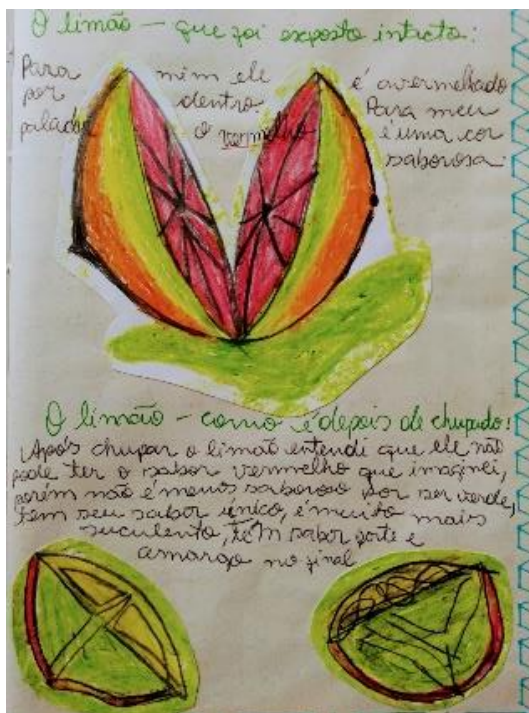 O limão - que foi exposto intacto:
Para mim ele é avermelhado
por dentro Para meu
paladar o vermelho é uma cor
saborosa.
O limão - como é depois de chupado:
Após chupar o limão entendi que ele não
pode ter o sabor vermelho que imaginei,
porém não é menos saboroso por ser verde,
tem seu sabor único, é muito mais
suculento, tem sabor forte e
amargo no final